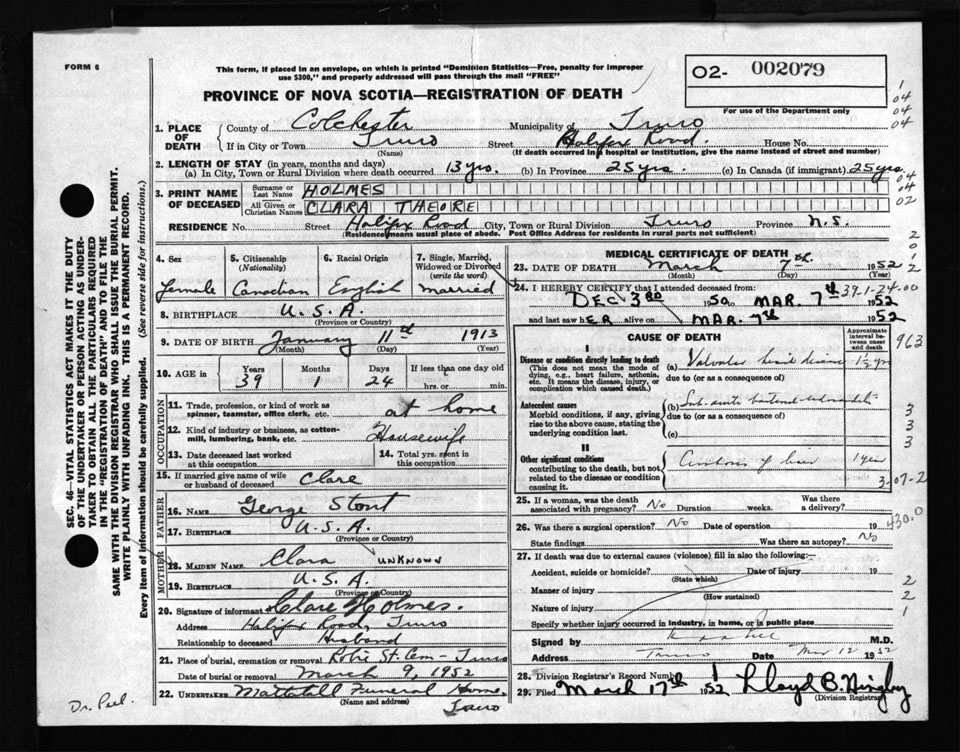 FORM 6
This form, if placed in an envelope, on which is printed "Dominion Statistics—Free, penalty for improper
use $300," and properly addressed will pass through the mail "FREE"
O2- 002079
PROVINCE OF NOVA SCOTIA—REGISTRATION OF DEATH
For use of the Department only
1. PLACE OF DEATH
County of Colchester Municipality of Truro
If in City or Town Truro Street Halifax Road. House No.
(Name) (If death occurred in a hospital or institution, give the name instead of street and number)
2. LENGTH OF STAY (in years, months and days)
(a) In City, Town or Rural Division where death occurred 13 yrs. (b) In Province 25 yrs. (c) In Canada (if immigrant) 25 yrs.
3. PRINT NAME OF DECEASED
Surname or Last Name HOLMES
All Given or Christian Names CLARA THEORE
RESIDENCE No. Street Halifax Road City, Town or Rural Division Truro Province N.S.
(Residence means usual place of abode. Post Office Address for residents in rural parts not sufficient)
4. Sex Female
5. Citizenship (Nationality) Canadian
6. Racial Origin English
7. Single, Married, Widowed or Divorced (write the word) married
8. BIRTHPLACE U.S.A.
(Province or Country)
9. DATE OF BIRTH January 11th 1913
(Month) (Day) (Year)
10. AGE in Years Months Days If less than one day old
39 1 24 hrs. or min.
OCCUPATION
11. Trade, profession, or kind of work as
spinner, teamster, office clerk, etc. at home
12. Kind of industry or business, as cotton-
mill, lumbering, bank, etc. Housewife
13. Date deceased last worked
at this occupation
14. Total yrs. spent in
this occupation
15. If married give name of wife
or husband of deceased Clare
FATHER
16. NAME George Stout
17. BIRTHPLACE U.S.A.
(Province or Country)
MOTHER
18. MAIDEN NAME Clara UNKNOWN
19. BIRTHPLACE U.S.A.
(Province or Country)
20. Signature of informant Clare Holmes.
Address Halifax Road, Truro
Relationship to deceased Husband
21. Place of burial, cremation or removal Robie St. Cem - Truro
Date of burial or removal March 9, 1952
22. UNDERTAKER Funeral Home,
(Name and address) Truro
MEDICAL CERTIFICATE OF DEATH
23. DATE OF DEATH March 7th. 1952
(Month) (Day)
24. I HEREBY CERTIFY that I attended deceased from:
DEC 3RD 1950 MAR. 7th 1952
39-1-24-00
and last saw hER alive on MAR. 7th 1952
CAUSE OF DEATH
Approximate interval between onset and death
I
Disease or condition directly leading to death
(This does not mean the mode of dying, e.g., heart failure, asthenia, etc. It means the disease, injury, or complication which caused death.)
(a) Valvular heart disease 1½ yrs
due to (or as a consequence of)
Antecedent causes
Morbid conditions, if any, giving rise to the above cause, stating the underlying condition last.
(b) Sub-acute bacterial endocarditis
due to (or as a consequence of)
(c)
II
Other significant conditions
contributing to the death, but not related to the disease or condition causing it.
Cirrhosis of liver 1 year
25. If a woman, was the death
associated with pregnancy? No Duration weeks. Was there a delivery?
26. Was there a surgical operation? No Date of operation 19
State findings Was there an autopsy? No
27. If death was due to external causes (violence) fill in also the following:—
Accident, suicide or homicide? Date of injury 19
(State which)
Manner of injury
(How sustained)
Nature of injury
Specify whether injury occurred in industry, in home, or in public place
Signed by M.D.
Address Truro Date Mar 12 1952
28. Division Registrar's Record Number 1
29. Filed March 17th 1952 Lloyd B.
(Division Registrar)
SEC. 46—VITAL STATISTICS ACT MAKES IT THE DUTY
OF THE UNDERTAKER OR PERSON ACTING AS UNDER-
TAKER TO OBTAIN ALL THE PARTICULARS REQUIRED
IN THE "REGISTRATION OF DEATH" AND TO FILE THE
SAME WITH THE DIVISION REGISTRAR WHO SHALL ISSUE THE BURIAL PERMIT.
WRITE PLAINLY WITH UNFADING INK. THIS IS A PERMANENT RECORD.
Every item of information should be carefully supplied. (See reverse side for instructions.)
1
04
04
04
04
04
02
2
0
1
2
963
3
3
3
3-07-2
430.0
2
2
1